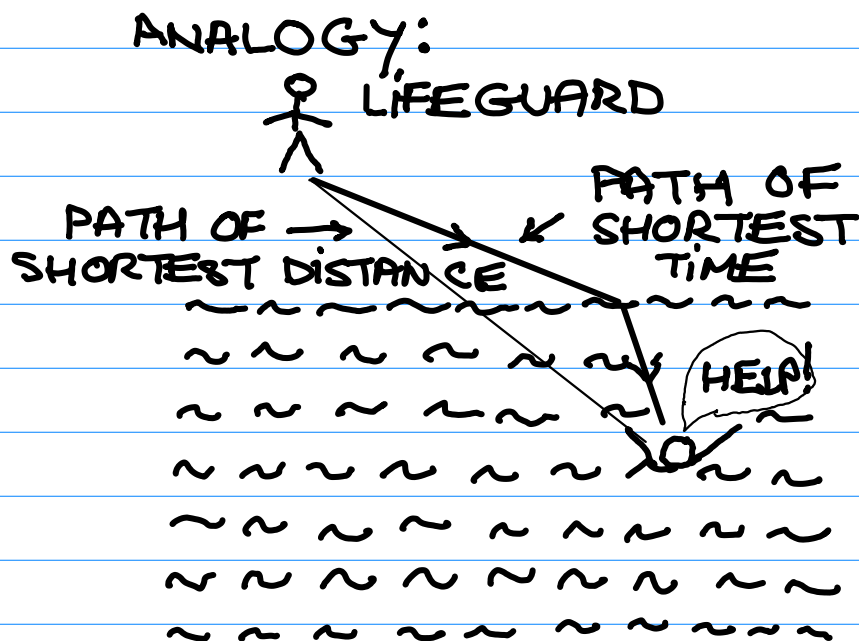 ANALOGY:
LiFEGUARD
PATH OF
SHORTEST DiSTANCE
PATH OF
SHORTEST
TiME
HELP!